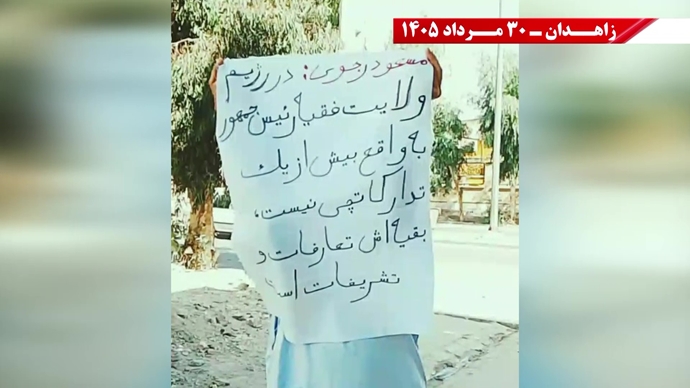 زاهدان ـ ۳۰ مرداد ۱۴۰۵
مسعود رجوی: در رژیم
ولایت فقیه رئیس جمهور
به واقع بیش از یک
تدارکاتچی نیست،
بقیه اش تعارفات و
تشریفات است